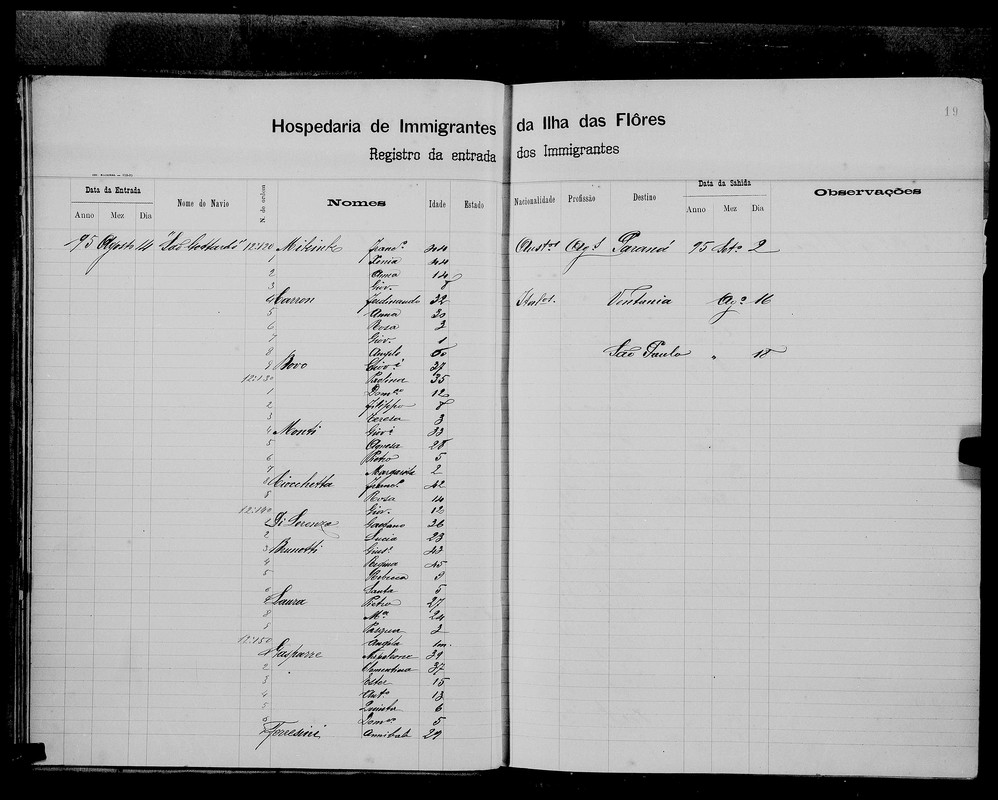 19
Hospedaria de Immigrantes da Ilha das Flôres
Registro da entrada dos Immigrantes
Data da Entrada Nome do Navio N. de ordem Nomes Idade Estado Nacionalidade Profissão Destino Data da Sahida Observações
Anno Mez Dia Anno Mez Dia
95 Agosto 14 12:120 44 Paraná 95 2
1 Xenia 44
2 Anna 14
3 Giov. 8
4 Ferdinando 32 Ventania Ago 16
5 Anna 30
6 Rosa 3
7 Giov. 1
8 Angelo São Paulo " 18
9 Bovo Giov.i 37
12:130 Paolina 35
1 Dom.co 12
2 Filippo 8
3 Teresa 3
4 Monti Giov.i 33
5 28
6 Pietro 5
7 Margarita 2
8 42
9 Rosa 14
12:140 Giov. 12
1 Di Lorenzo Gaetano 26
2 Lucia 23
3 Brunotti Gius.e 43
4 Regina 45
5 Rebecca 9
6 Santa 5
7 Laura Pietro 27
8 M.a 24
9 Pasqua 2
12:150 Angela 1m.
1 Gasparre Napoleone 39
2 Clementina 37
3 Ester 15
4 Ant.o 13
5 Quinta 6
6 5
7 Torresini Annibale 29